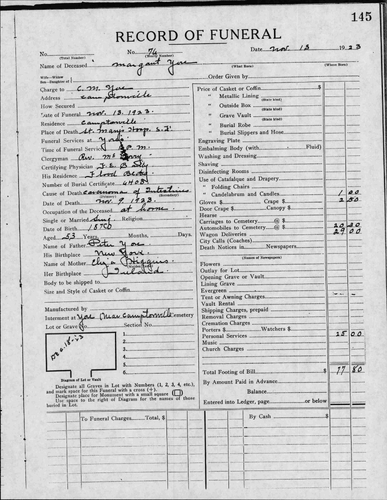 145
RECORD OF FUNERAL
No. No. 74 Date Nov. 13 1923
(Total Number) (Yearly Number)
Name of Deceased Margaret You
(What Race) (Where Born)
Wife—Widow
Son—Daughter of
Order Given by
Charge to C. M. You
Address Camptonville
How Secured
Date of Funeral Nov. 13, 1923.
Residence Camptonville
Place of Death St. Mary's Hosp. S. F.
Funeral Services at
Time of Funeral Service P.M.
Clergyman Rev.
Certifying Physician
His Residence
Number of Burial Certificate
Cause of Death Carcinoma of Intestines
Date of Death Nov. 9, 1923.
Occupation of the Deceased at home
Single or Married Sing Religion
Date of Birth 1870
Aged 53 Years, Months, Days.
Name of Father Peter You
His Birthplace New York
Name of Mother Higgins
Her Birthplace Ireland
Body to be shipped to
Size and Style of Casket or Coffin
Manufactured by
Interment at You Near Camptonville cemetery
Lot or Grave No. Section No.
1.
2.
3.
4.
5.
6.
Diagram of Lot or Vault
Designate all Graves in Lot with Numbers (1, 2, 3, 4, etc.),
and mark space for this Funeral with a cross (+).
Designate place for Monument with a small square (□)
Use space to the right of Diagram for names of those
buried in Lot.
Price of Casket or Coffin $
" Metallic Lining
(State kind)
" Outside Box
(State kind)
" Grave Vault
(State kind)
" Burial Robe
(State kind)
" Burial Slippers and Hose
Engraving Plate
Embalming Body (with Fluid)
Washing and Dressing
Shaving
Disinfecting Rooms
Use of Catafalque and Drapery
" Folding Chairs
" Candelabrum and Candles 1 00
Gloves $ Crape $ 2 50
Door Crape $ Canopy $
Hearse
Carriages to Cemetery @ $
Automobiles to Cemetery @ $
Wagon Deliveries @ $
City Calls (Coaches) @ $
Death Notices in Newspapers.
(Names of Newspapers)
Flowers
Outlay for Lot
Opening Grave or Vault
Lining Grave
Evergreen
Tent or Awning Charges
Vault Rental
Shipping Charges, prepaid
Cremation Charges
Porters $ Watchers $
Personal Services 25 00
Music
Church Charges
Total Footing of Bill $ 77 80
By Amount Paid in Advance
Balance
Entered into Ledger, page or below.
To Funeral Charges, Total, $ By Cash $